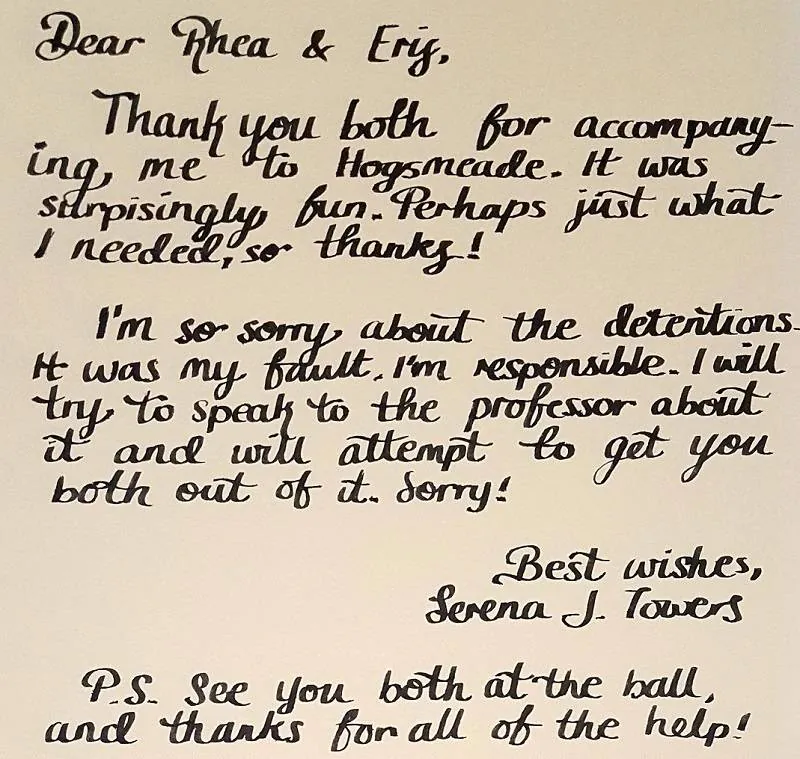 Dear Rhea & Eris,
Thank you both for accompany-
ing, me to Hogsmeade. It was
surpisingly fun. Perhaps just what
I needed, so thanks!
I'm so sorry about the detentions.
It was my fault. I'm responsible. I will
try to speak to the professor about
it and will attempt to get you
both out of it. Sorry!
Best wishes,
Serena J. Towers
P.S. See you both at the ball,
and thanks for all of the help!